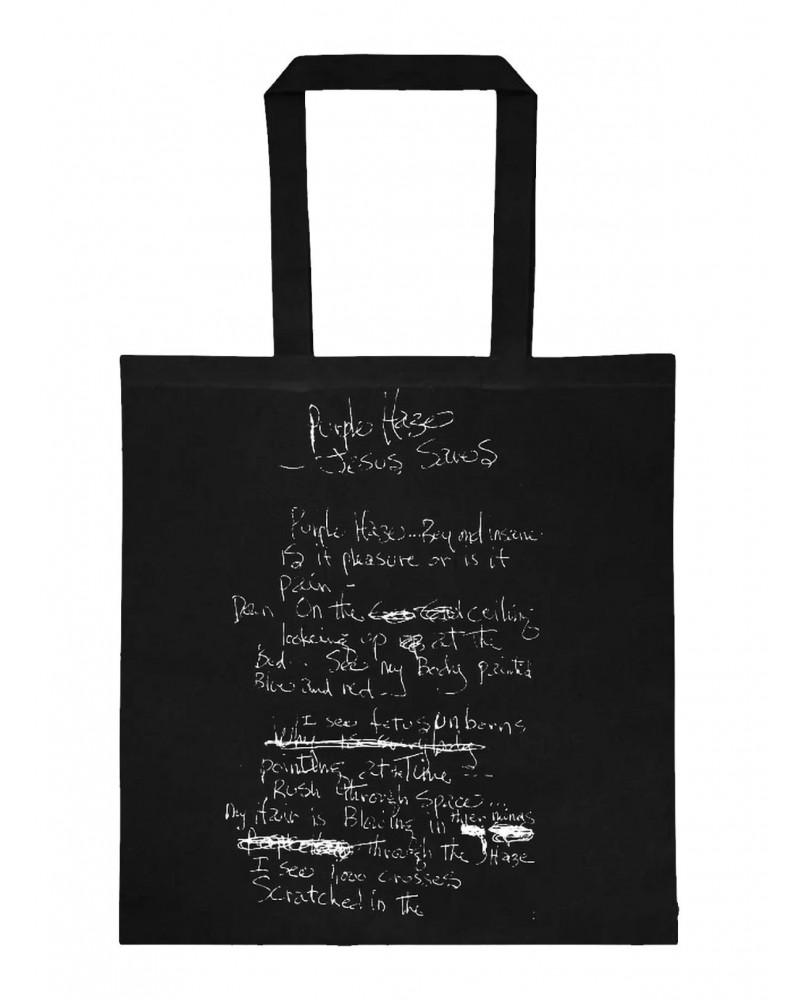 Purple Haze
- Jesus Saves
Purple Haze... Beyond insane
Is it pleasure or is it
pain -
Down On the ceiling
looking up at the
Bed... See my Body painted
Blue and red...
I see fetus unborns
Why is everybody
pointing at Time ...
Rush through space...
My Hair is Blowing in
through the Haze
I see 1,000 crosses
Scratched in the